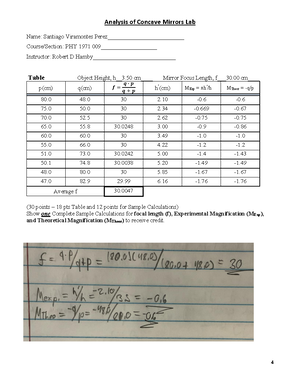 Analysis of Concave Mirrors Lab
Name: Santiago Viramontes Perez
Course/Section: PHY 1971 009
Instructor: Robert D Hamby
Table Object Height, h__3.50 cm___ Mirror Focus Length, f___30.00 cm___
p (cm) q (cm) f = q·p/q+p h (cm) M_Exp = ±h'/h M_Theor = -q/p
80.0 48.0 30 2.10 -0.6 -0.6
75.0 50.0 30 2.34 -0.669 -0.67
70.0 52.5 30 2.62 -0.75 -0.75
65.0 55.8 30.0248 3.00 -0.9 -0.86
60.0 60.0 30 3.49 -1.0 -1.0
55.0 66.0 30 4.22 -1.2 -1.2
51.0 73.0 30.0242 5.00 -1.4 -1.43
50.1 74.8 30.0038 5.20 -1.49 -1.49
48.0 80.0 30 5.85 -1.67 -1.67
47.0 82.9 29.99 6.16 -1.76 -1.76
Average f 30.0047
(30 points – 18 pts Table and 12 points for Sample Calculations)
Show one Complete Sample Calculations for focal length (f), Experimental Magnification (M_Exp),
and Theoretical Magnification (M_Theor) to receive credit.
f = q·p/q+p = (80.0)(48.0)/(80.0 + 48.0) = 30
M_exp. = h'/h = -2.10/3.5 = -0.6
M_Theo = -q/p = -48.0/80.0 = -0.6
4